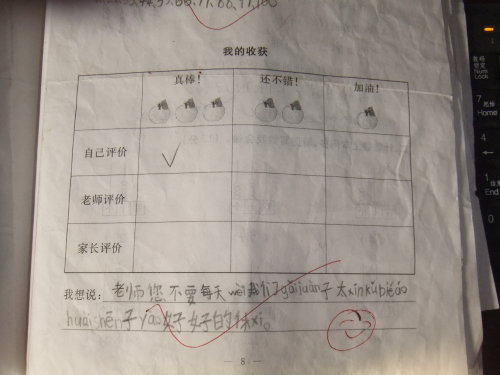 我的收获
真棒！ 还不错！ 加油！
自己评价
老师评价
家长评价
我想说：老师您不要每天 我们了gǎijuàn子太xīnkǔ
huàishēn子yào好好的休xi。
— 8 —
Num Lock
7 Home
4
←
1 End
0